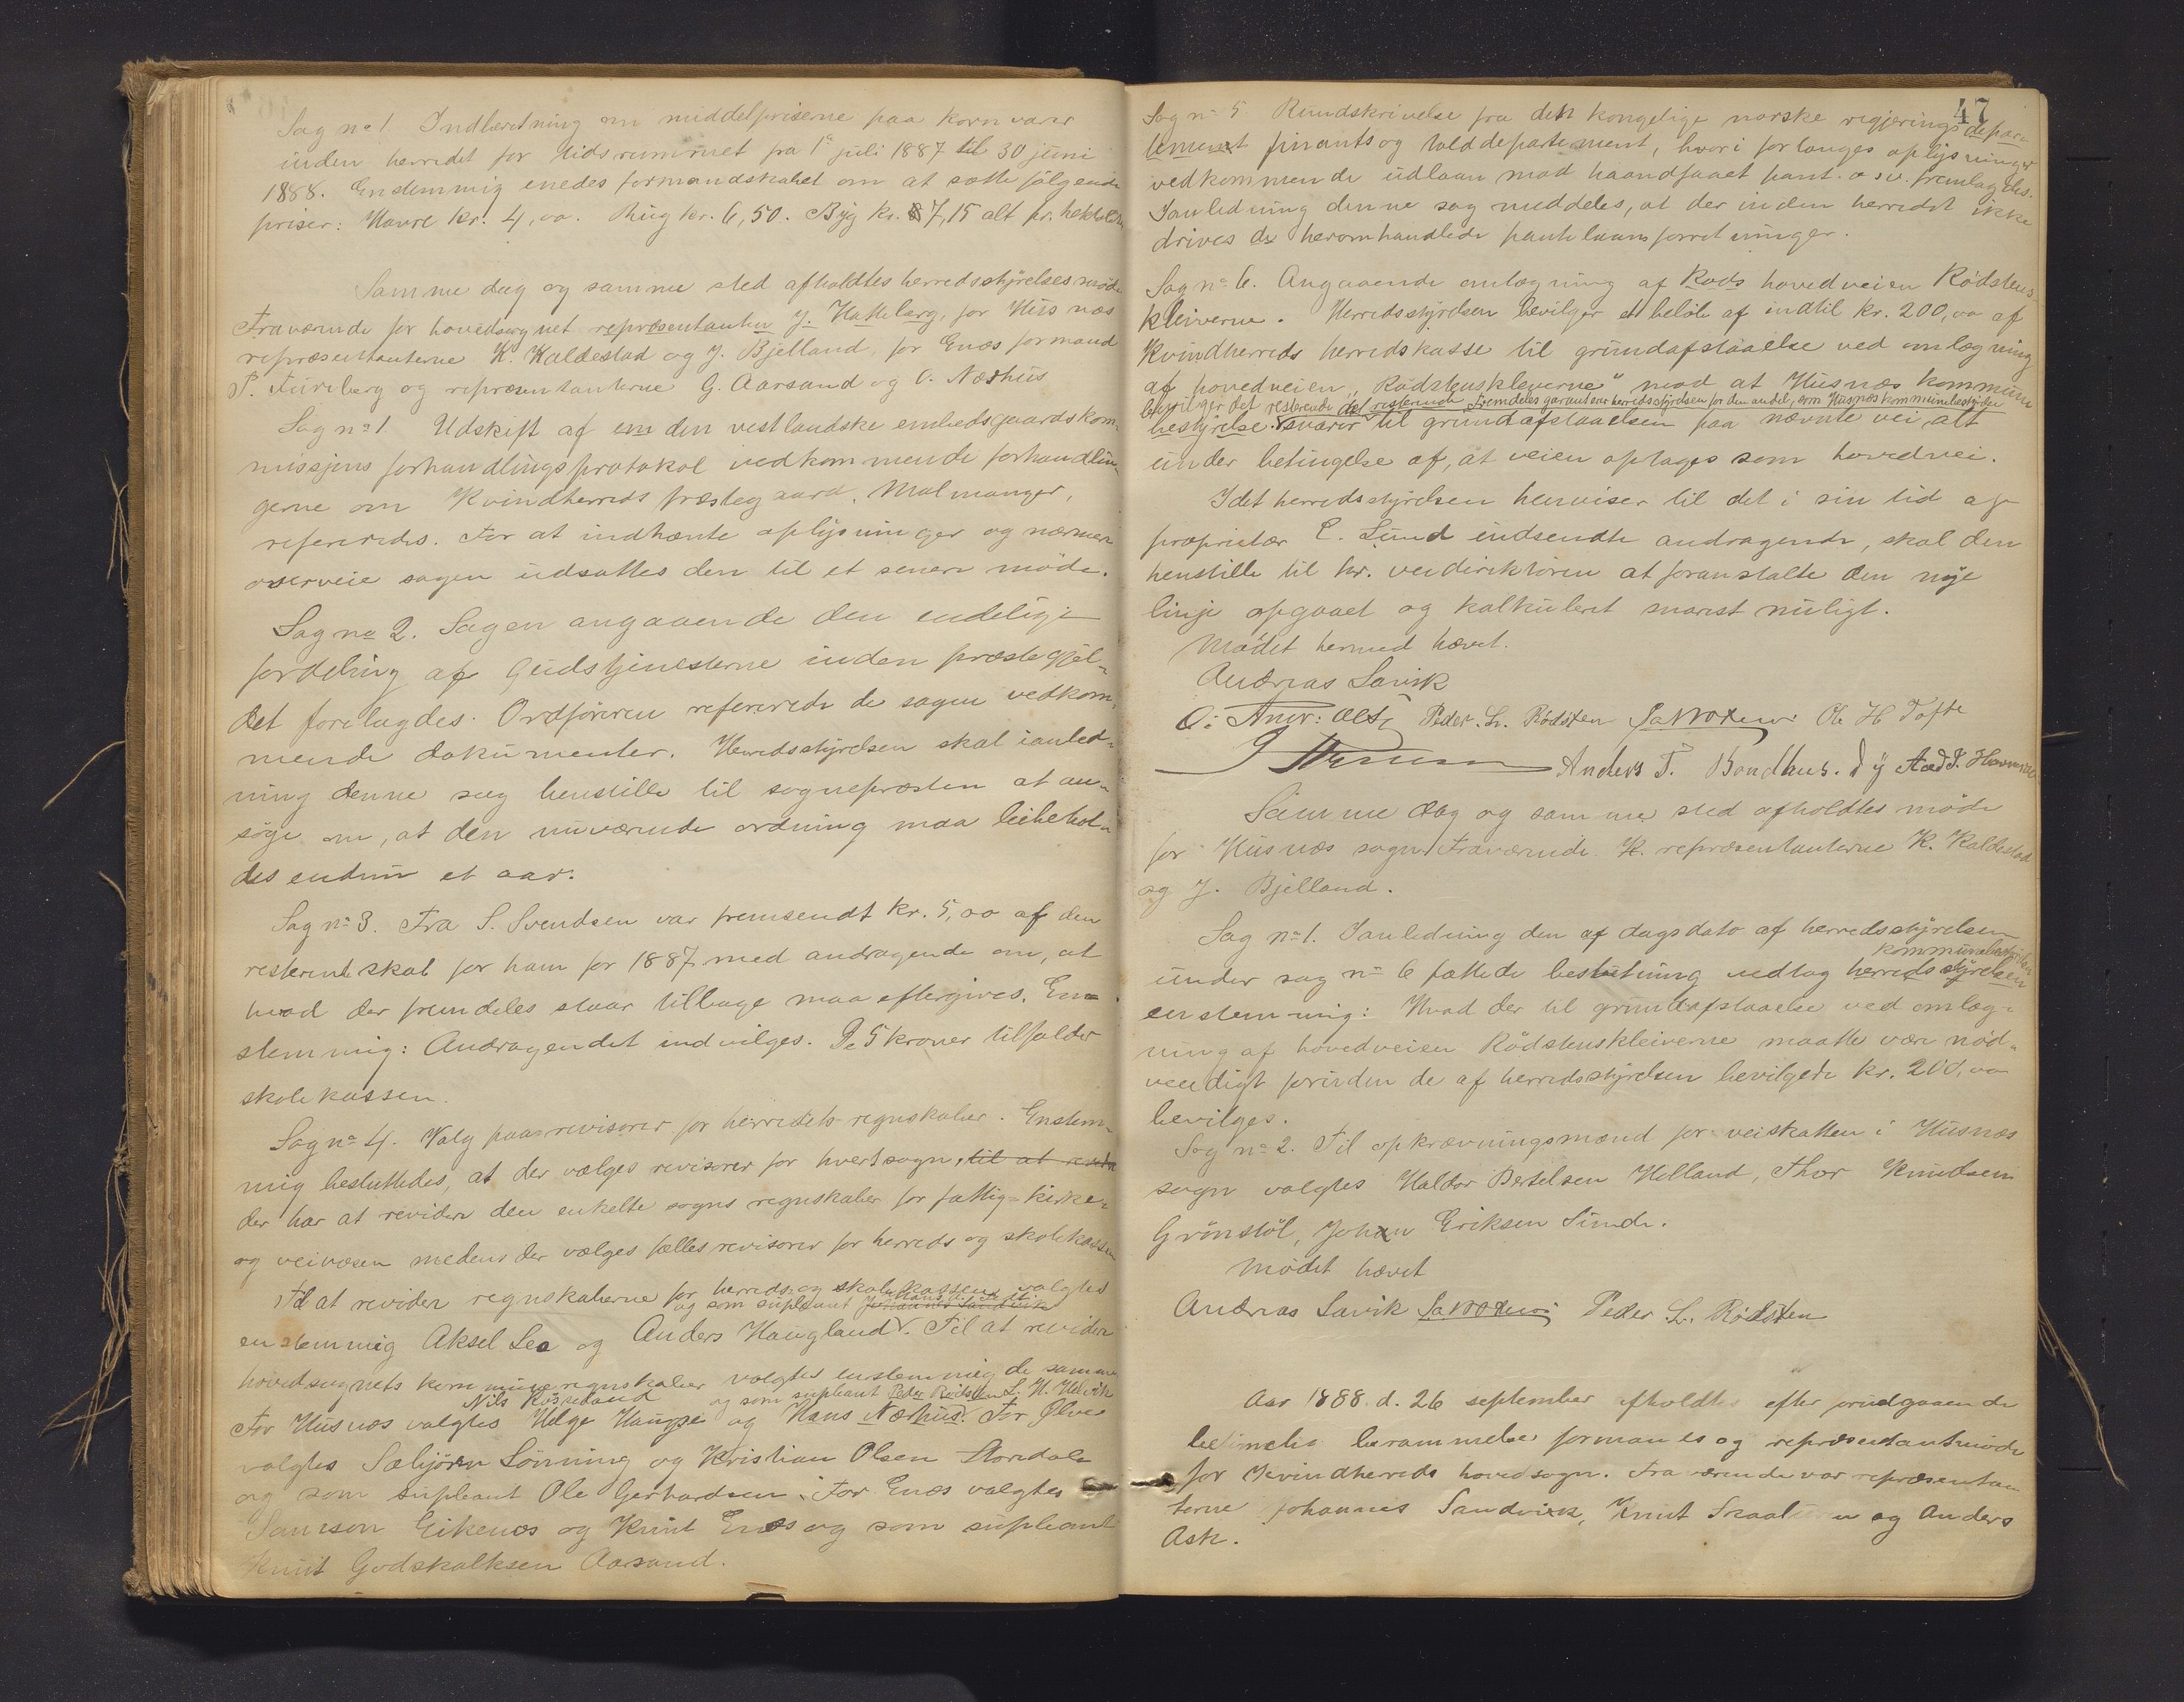 Sag no 1. Indberetning om middelpriserne paa kornvarer
inden herredet for tidsrummet fra 1ste juli 1887 til 30 juni
1888. Enstemmig enedes formandskabet om at sætte følgende
priser: Havre kr. 4,00. Rug kr. 6,50. Byg kr. 7,15 alt pr. hektoliter
Samme dag og samme sted afholdtes herredsstyrelsesmøde
Fraværende for hovedsognet repræsentanten J. Hatteberg, for Husnæs
repræsentanterne K. Kaldestad og J. Bjelland, for Enæs formand
P. Fureberg og repræsentanterne G. Aarsand og O. Næshus
Sag no 1. Udskift af em den vestlandske embedsgaardskom-
missjons forhandlingsprotokol vedkommende forhandlin-
gerne om Kvindherreds præstegaard, Malmanger,
refereredes. For at indhente oplysninger og nærmere
overveie sagen udsattes den til et senere møde.
Sag no 2. Sagen angaaende den endelige
fordeling af gudstjenesterne inden præstegjel-
det forelagdes. Ordføreren refererede de sagen vedkom-
mende dokumenter. Herredsstyrelsen skal ianled-
ning denne sag henstille til sognepræsten at an-
søge om, at den nuværende ordning maa beibehol-
des endnu et aar.
Sag no 3. Fra S. Svendsen var fremsendt kr. 5,00 af den
resterende skat for ham for 1887 med andragende om, at
hvad der fremdeles staar tilbage maa eftergives. En-
stemmig: Andragendet indvilges. De 5 kroner tilfalder
skolekassen.
Sag no 4. Valg paa revisorer for herredets regnskaber. Enstem-
mig besluttedes, at der vælges revisorer for hvert sogn, til at
der har at revidere den enkelte sogns regnskaber for fattig- kirke-
og veivæsen medens der vælges fælles revisorer for herreds og skolekassen
Til at revidere regnskaberne for herreds og skolekassen valgtes
og som supleant Johannes Sandvik
enstemmig Aksel Lea og Anders Haugland. Til at revidere
hovedsognets kommuneregnskaber valgtes enstemmig de samme
Nils og som supleant Peder Rødsten L. H. Helvik
For Husnæs valgtes Helge Hauge og Hans Nærhus. For Ølve
valgtes Sæbjørn Lønning og Kristian Olsen Storedale
og som supleant Ole Gerhardsen. For Enæs valgtes
Samson Eikenæs og Knut Enæs og som supleant
Knut Godskalksen Aarsand.
47
Sag no 5 Rundskrivelse fra den kongelige norske regjerings depar-
tement finants og tolddepartement, hvori forlanges oplysninger
vedkommende udlaan mod haandfaaet pant o. s. v. fremlagdes.
Ianledning denne sag meddeles, at der inden herredet ikke
drives de heromhandlede pantelaansforretninger.
Sag no 6. Angaaende omlægning af Rods hovedveien Rødstens-
kleiverne. Herredsstyrelsen bevilger et beløb af indtil kr. 200,00 af
Kvindherreds herredskasse til grundafstaaelse ved omlægning
af hovedveien "Rødstenskleverne" mod at Husnæs kommune
bevilger det resterende det resterende Fremdeles garanterer herredsstyrelsen for den andel, som Husnæs kommunebestyrelse
bestyrelse svarer til grundafstaaelsen paa nævnte vei, alt
under betingelse af, at veien optages som hovedvei.
Idet herredsstyrelsen henviser til det i sin tid af
proprietær E. Lund indsendte andragende, skal den
henstille til hr. veidirektøren at foranstalte den nye
linje opgaaet og kalkuleret snarest muligt.
Mødet hermed hævet.
Andreas Sævik
Peder L. Rødsten Ole H Tofte
Anders T. Bondhus.
Samme dag og samme sted afholdtes møde
for Husnæs sogn. Fraværende K. repræsentanterne K. Kaldestad
og J. Bjelland.
Sag no 1. Ianledning den af dagsdato af herredsstyrelsen
kommunebestyrelsen
under sag no 6 fattede beslutning vedtog herredsstyrelsen
enstemmig: Hvad der til grundafstaaelse ved omlæg-
ning af hovedveien Rødstenskleiverne maatte være nød-
vendigt foruden de af herredsstyrelsen bevilgede kr. 200,00
bevilges.
Sag no 2. Til opkrævningsmænd for veiskatten i Husnæs
sogn valgtes Haldor Bertelsen Helland, Thor Knudsen
Grønstøl, Johan Eriksen Sunde.
Mødet hævet
Andreas Sævik Peder L. Rødsten
Aar 1888 d. 26 september afholdtes efter forudgaaende
betimelig berammelse formands og repræsentantmøde
for Kvindherreds hovedsogn. Fraværende var repræsentan
terne Johannes Sandvik, Knut Skaaluren og Anders
Ask.